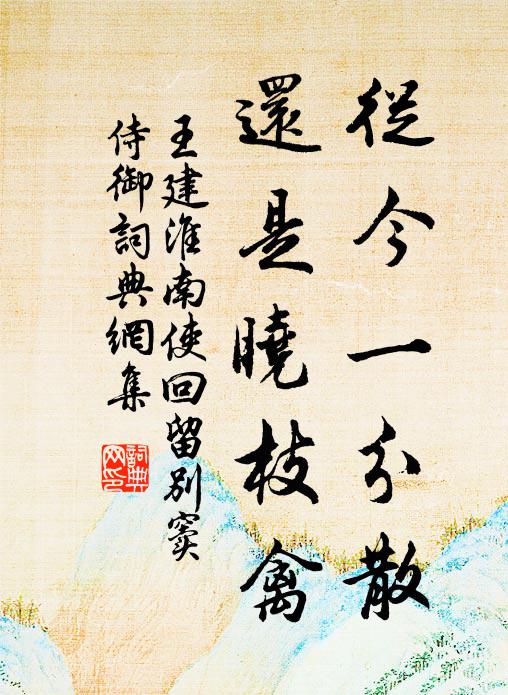 從今一分散
還是曉枝禽
王建淮南使回留別竇
侍御詞典網集
詞典
网印